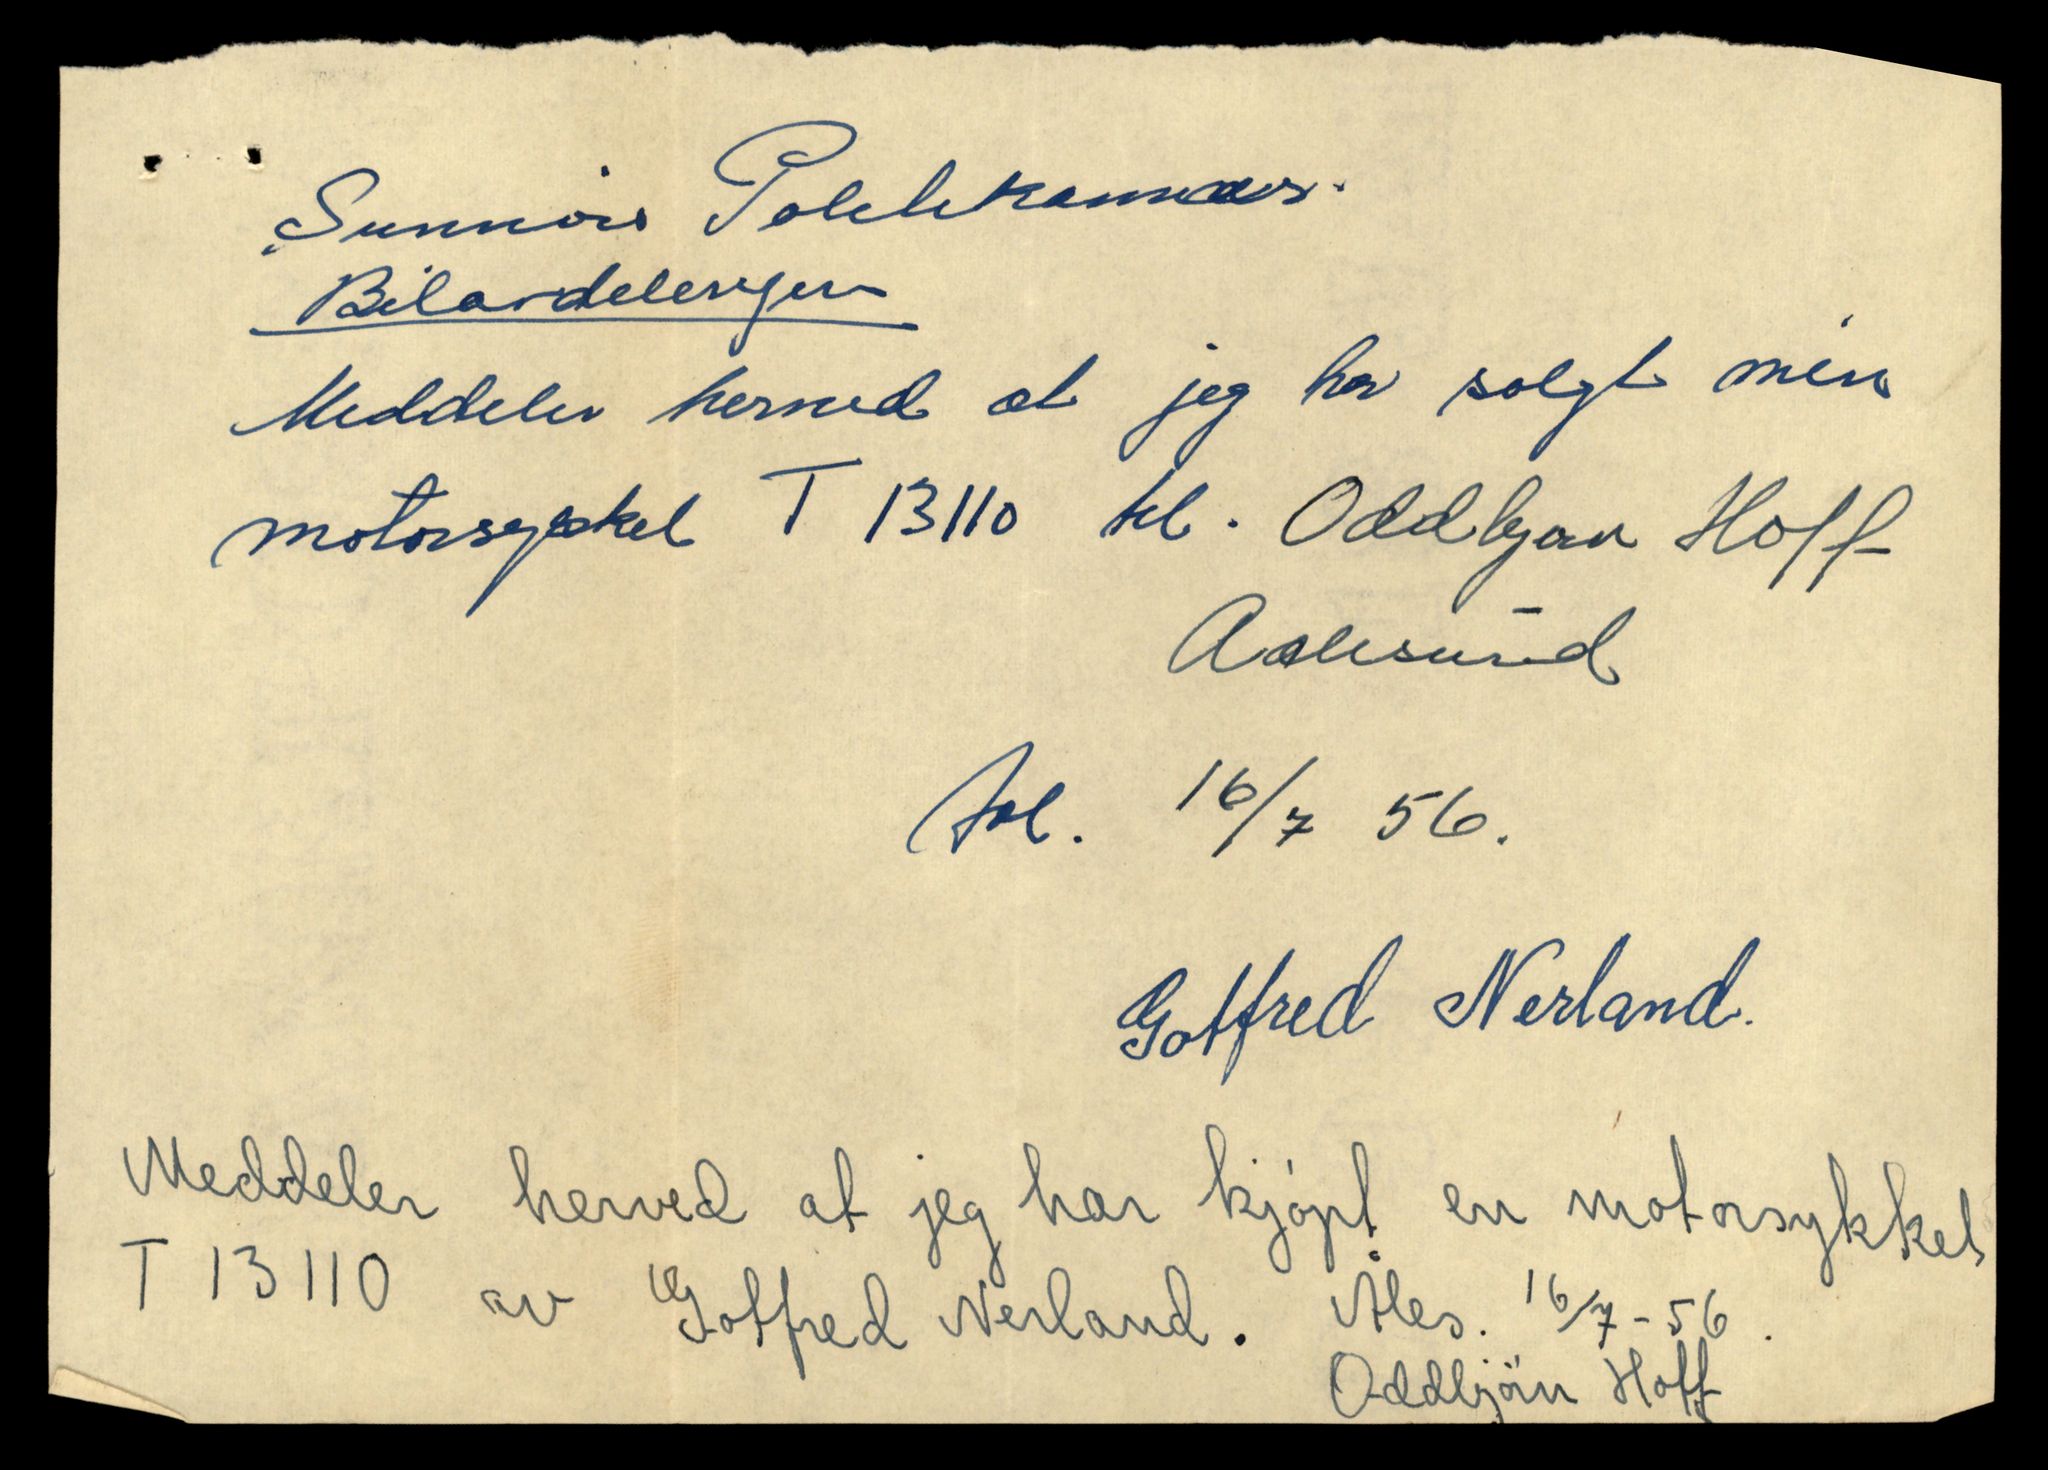 Sunnøre Politikammer.
Bilavdelingen
Meddeler herved at jeg har solgt min
motorsykkel T 13110 til. Oddbjørn Hoff
Aalesund
Aal. 16/7 56.
Gotfred Nerland.
Meddeler herved at jeg har kjøpt en motorsykkel
T 13110 av Gotfred Nerland. Åles. 16/7-56.
Oddbjörn Hoff